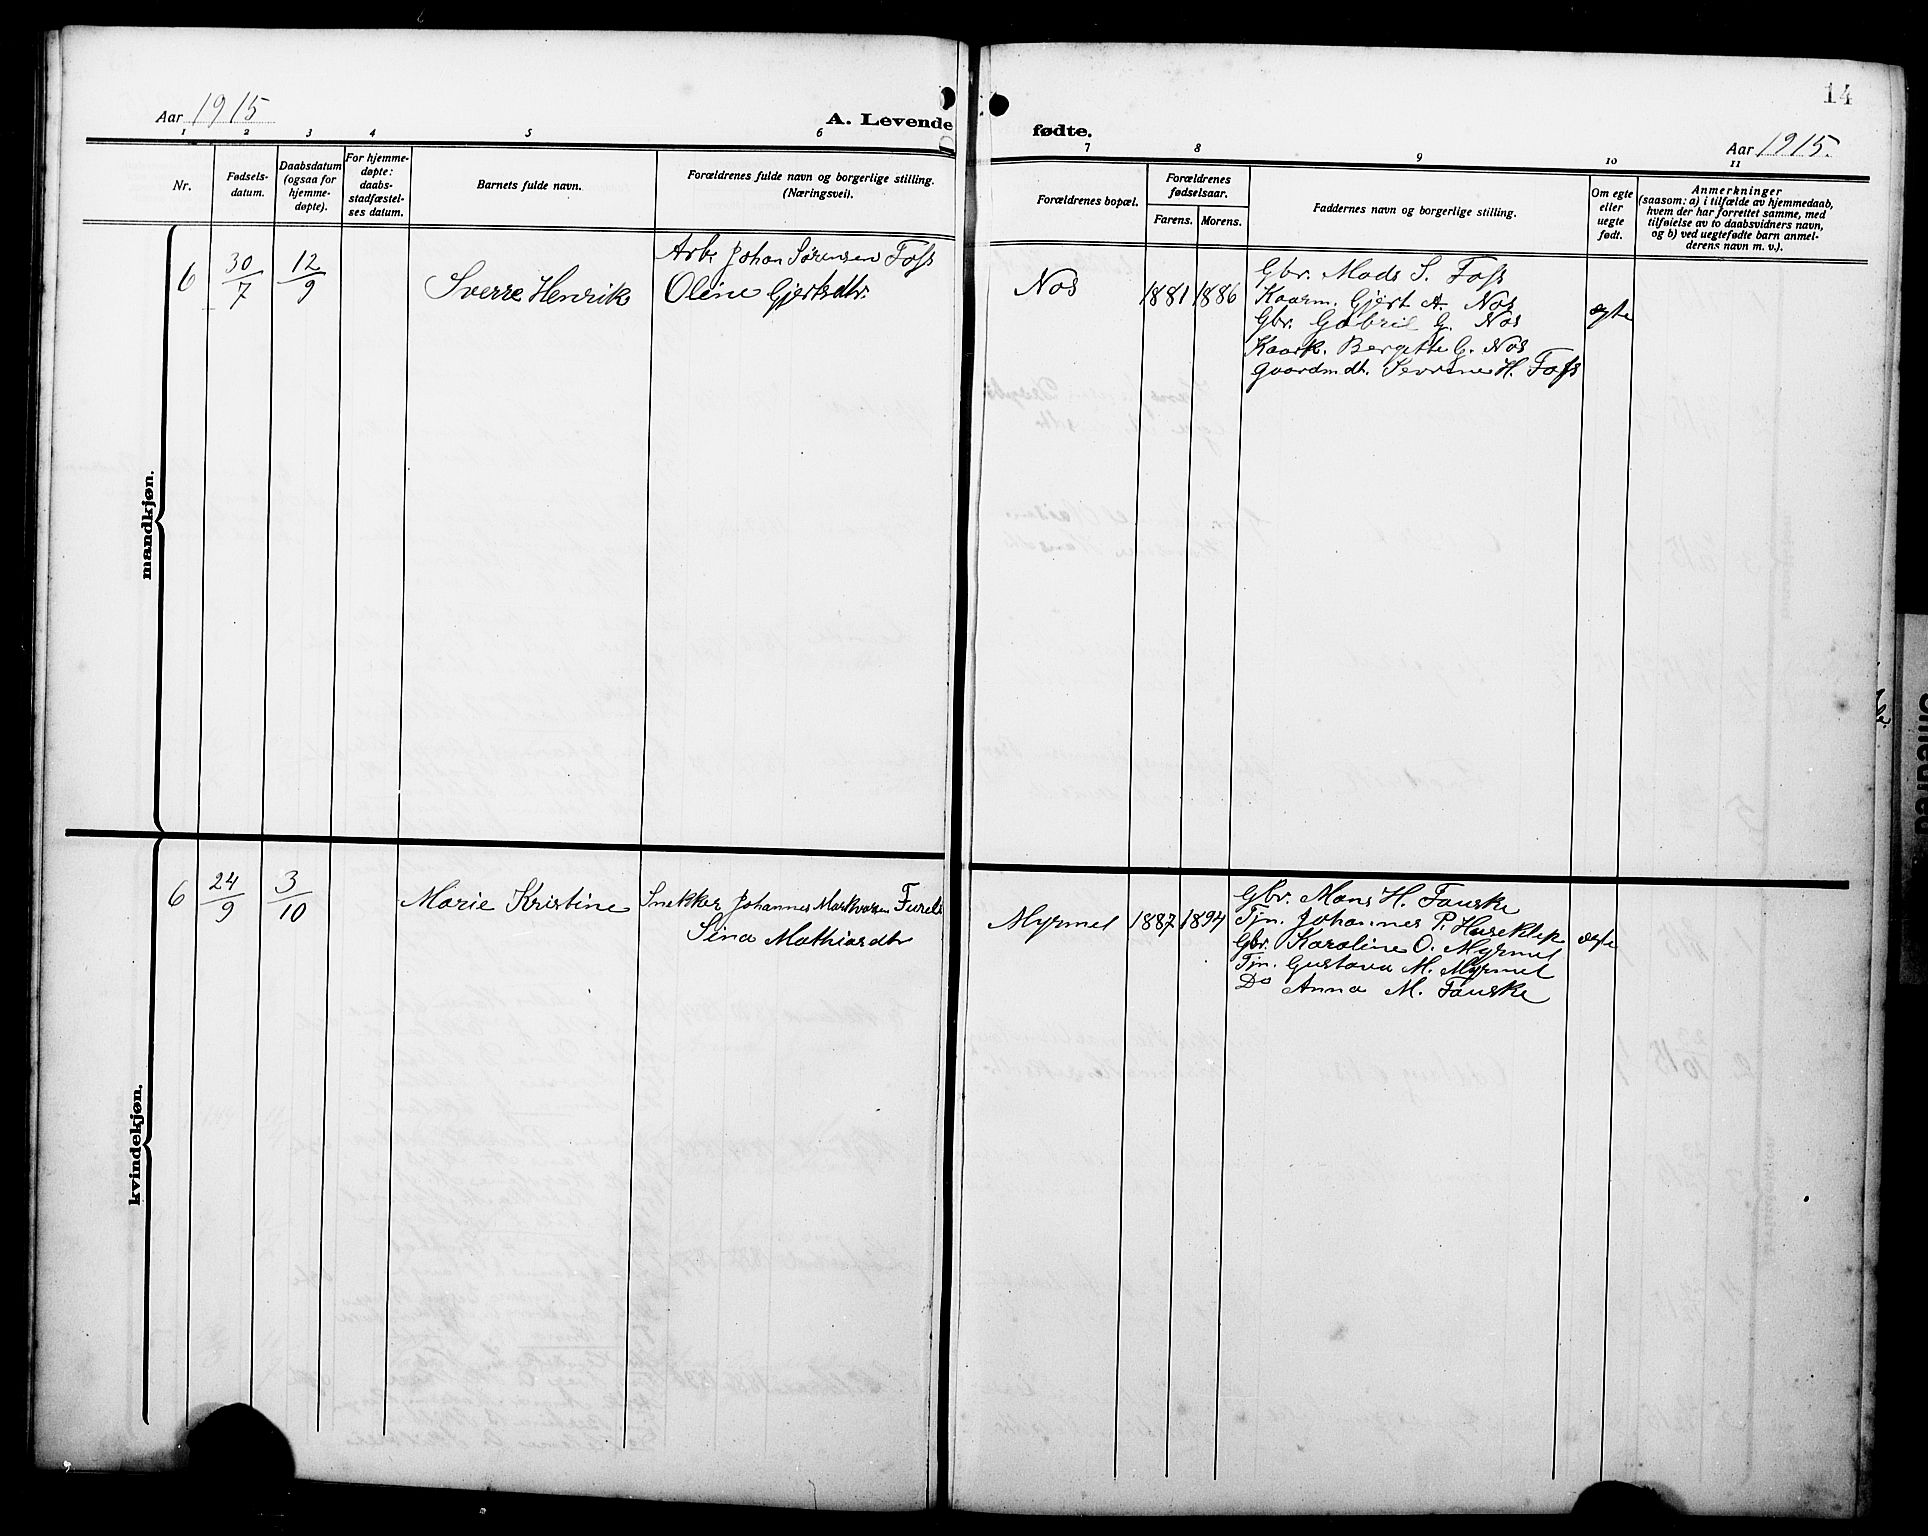 14
Aar 1915
A. Levende fødte.
Aar 1915.
1 2 3 4 5 6 7 8 9 10 11
Nr.
Fødsels-
datum.
Daabsdatum
(ogsaa for
hjemme-
døpte).
For hjemme-
døpte:
daabs-
stadfæstel-
ses datum.
Barnets fulde navn.
Forældrenes fulde navn og borgerlige stilling.
(Næringsvei).
Forældrenes bopæl.
Forældrenes
fødselsaar.
Farens. Morens.
Faddernes navn og borgerlige stilling.
Om egte
eller
uegte
født.
Anmerkninger
(saasom: a) i tilfælde av hjemmedaab,
hvem der har forrettet samme, med
tilføielse av to daabsvidners navn,
og b) ved uegtefødte barn anmel-
derens navn m. v.).
mandkjøn.
6
30/7
12/9
Sverre Henrik
Arb. Johan Sørensen Foss
Oline Gjertsdtr.
Nos
1881 1886
Gbr. Mads S. Foss
Kaarm. Gjert A. Nos
Gbr. Gabriel G. Nos
Kaark. Bergitte G. Nos
Gaardmdt. Sevrine H. Foss
egte
kvindekjøn.
6
24/9
3/10
Marie Kristine
Snekker Johannes Markvosen
Sina Mathiasdtr
Myrmel
1887 1894
Gbr. Mons H. Fauske
Tjn. Johannes P. Huseklep
Gbr. Karoline O. Myrmel
Tjn. Gustava M. Myrmel
Do Anna M. Fauske
egte